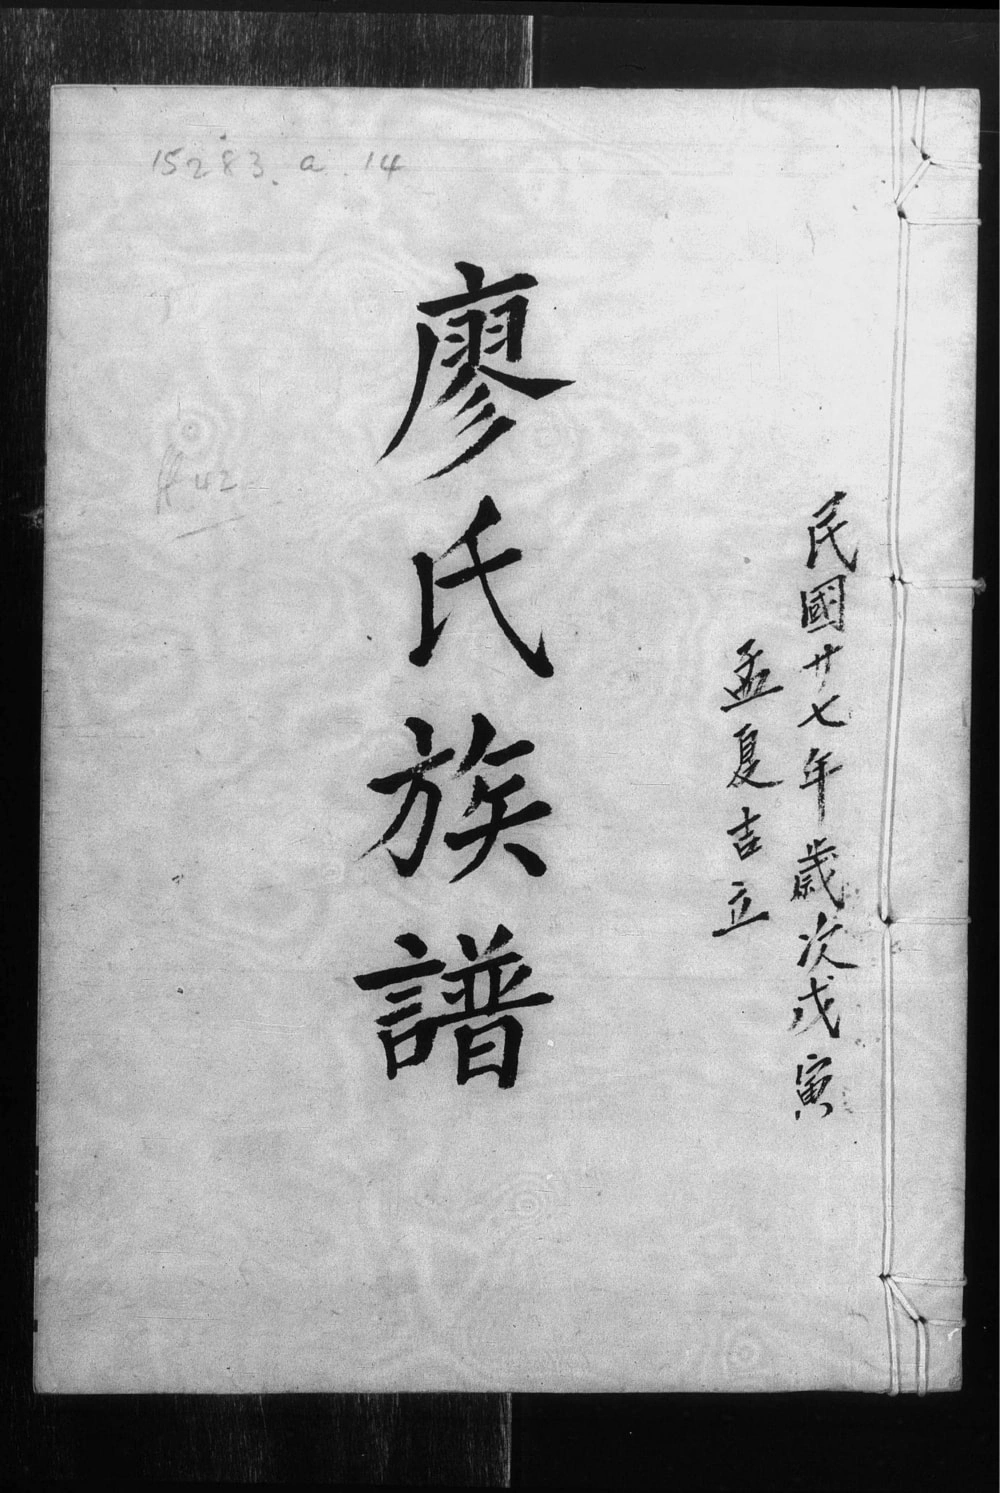 15283.a.14
民國廿七年歲次戊寅
孟夏吉立
廖氏族譜
42